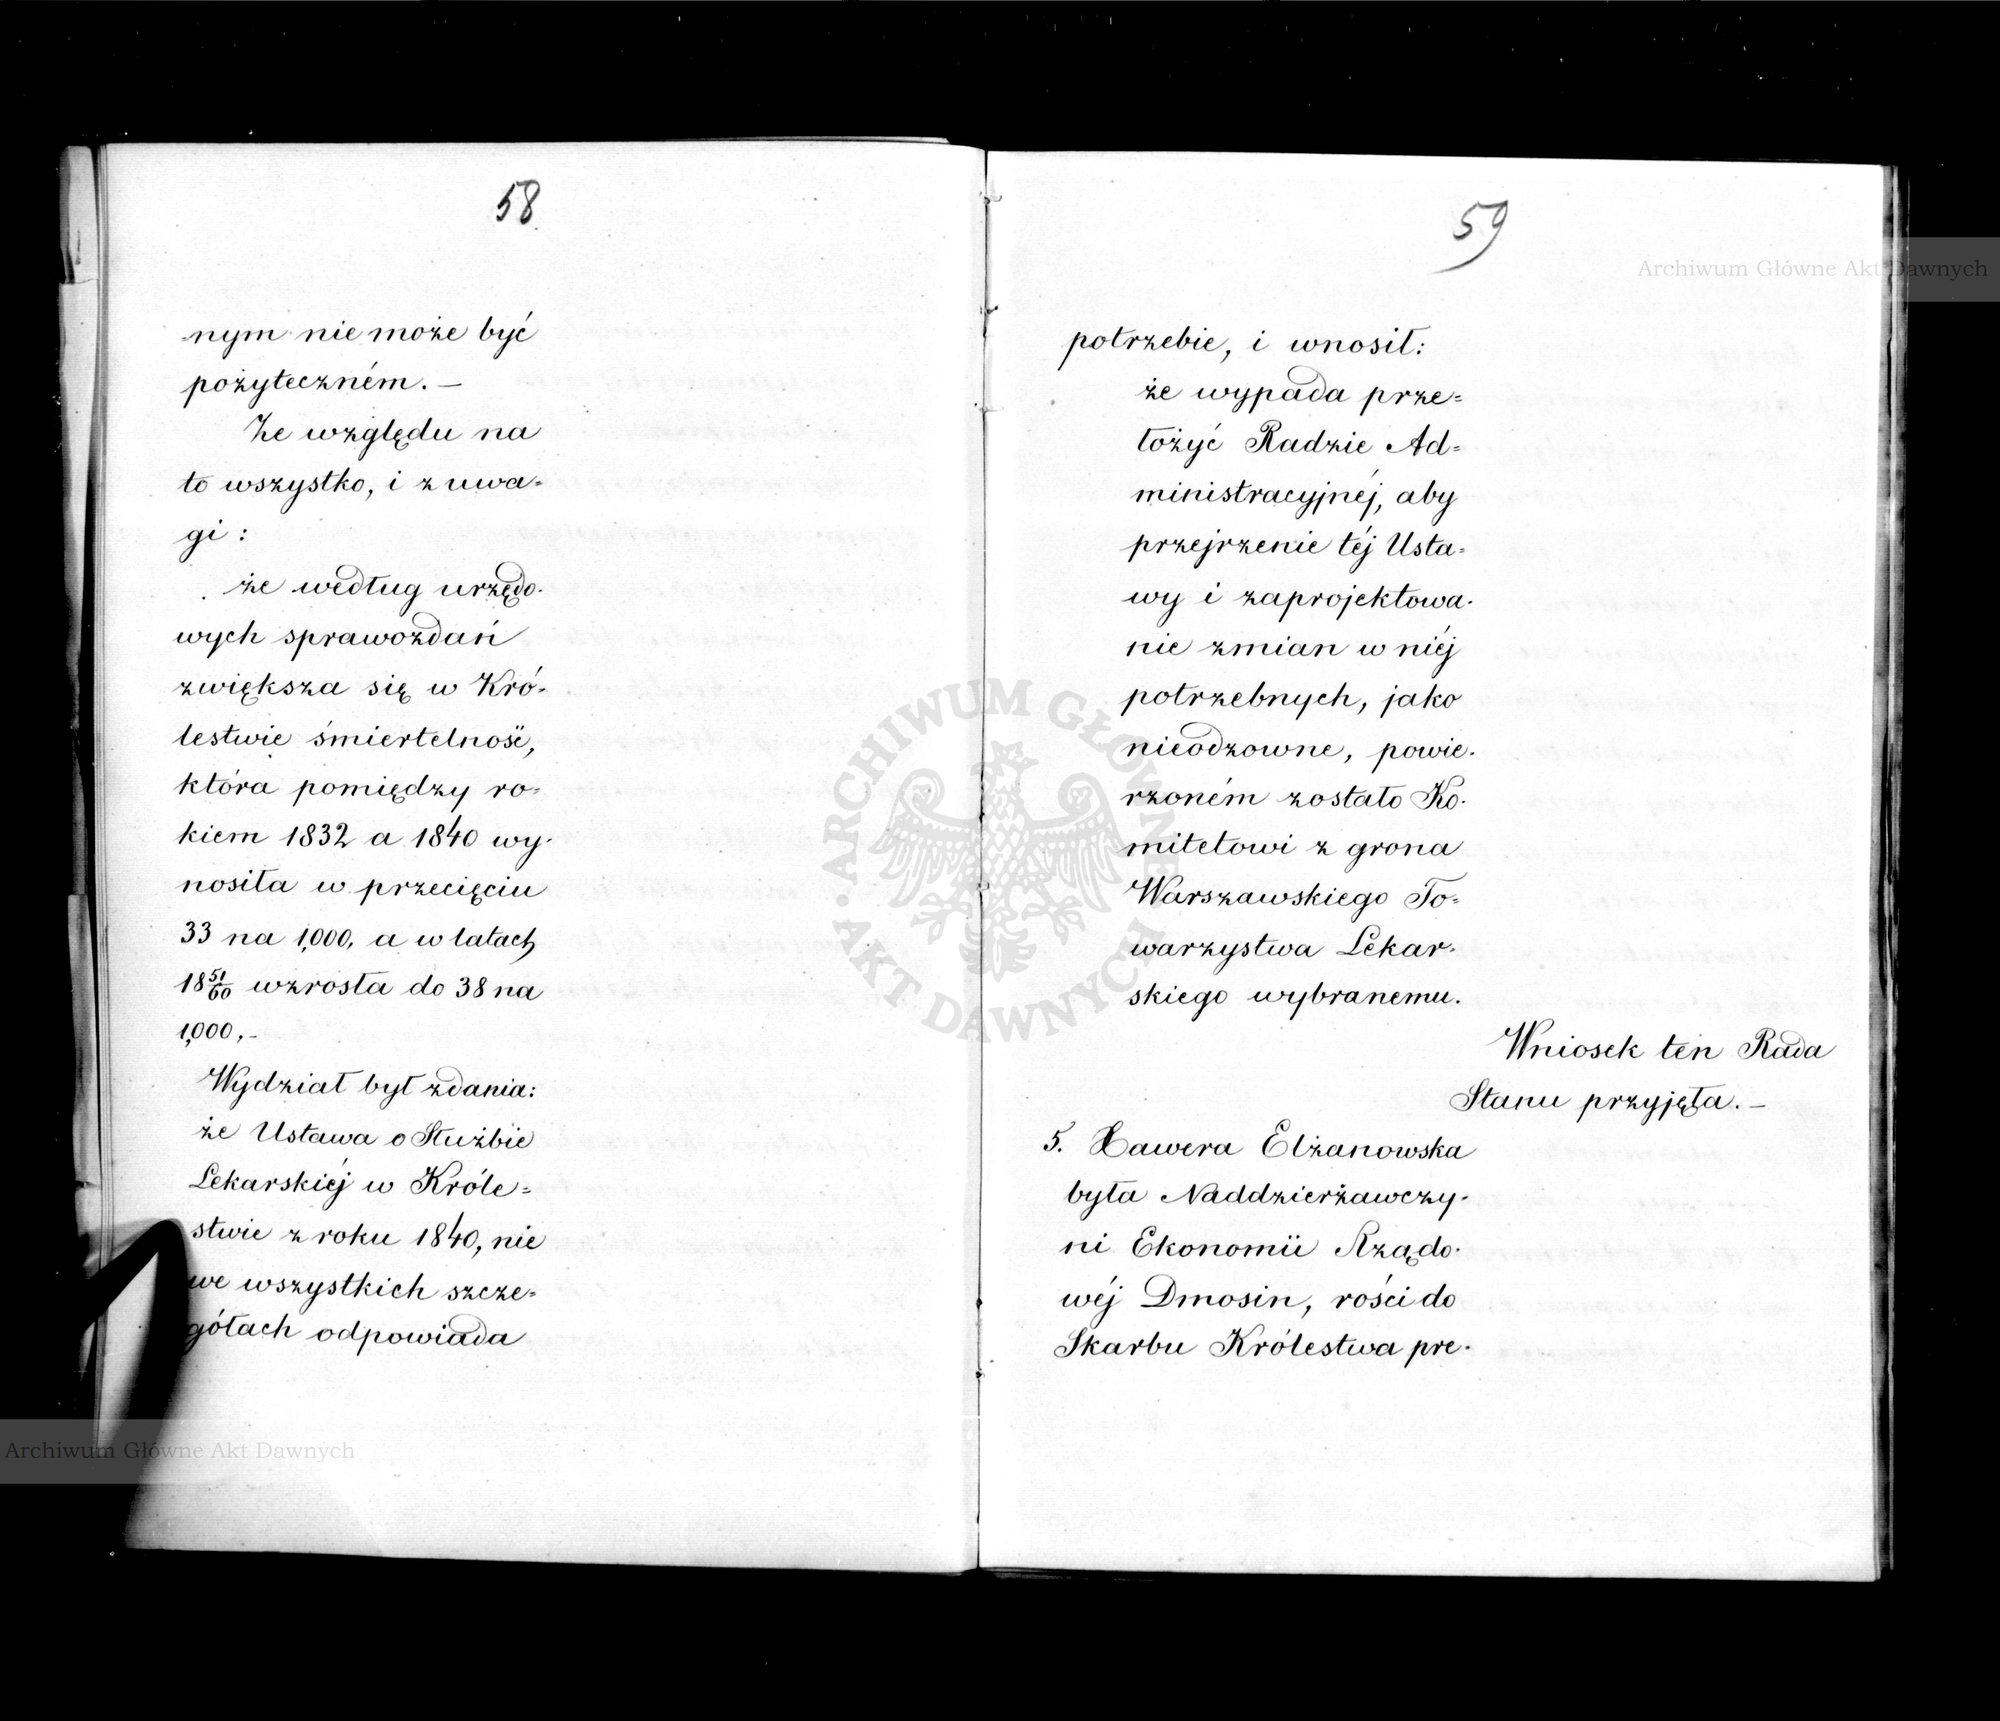 58
nym nie może być
pożyteczném. —
Ze względu na
to wszystko, i z uwa=
gi:
że według urzędo-
wych sprawozdań
zwiększa się w Kró=
lestwie śmiertelność,
która pomiędzy ro=
kiem 1832 a 1840 wy-
nosiła w przecięciu
33 na 1,000, a w latach
18 51/60 wzrosła do 38 na
1,000,-
Wydział był zdania:
że Ustawa o Służbie
Lekarskiéj w Króle=
stwie z roku 1840, nie
we wszystkich szcze=
gółach odpowiada
59
potrzebie, i wnosił:
że wypada prze=
łożyć Radzie Ad=
ministracyjnéj, aby
przejrzenie téj Usta=
wy i zaprojektowa-
nie zmian w niéj
potrzebnych, jako
nieodzowne, powie-
rzoném zostało Ko-
mitetowi z grona
Warszawskiego To=
warzystwa Lekar-
skiego wybranemu.
Wniosek ten Rada
Stanu przyjęła. —
5. Xawera Elżanowska
była Naddzierżawczy-
ni Ekonomii Rządo-
wéj Dmosin, rości do
Skarbu Królestwa pre-
Archiwum Główne Akt Dawnych
Archiwum Główne Akt Dawnych
ARCHIWUM GŁÓWNE AKT DAWNYCH